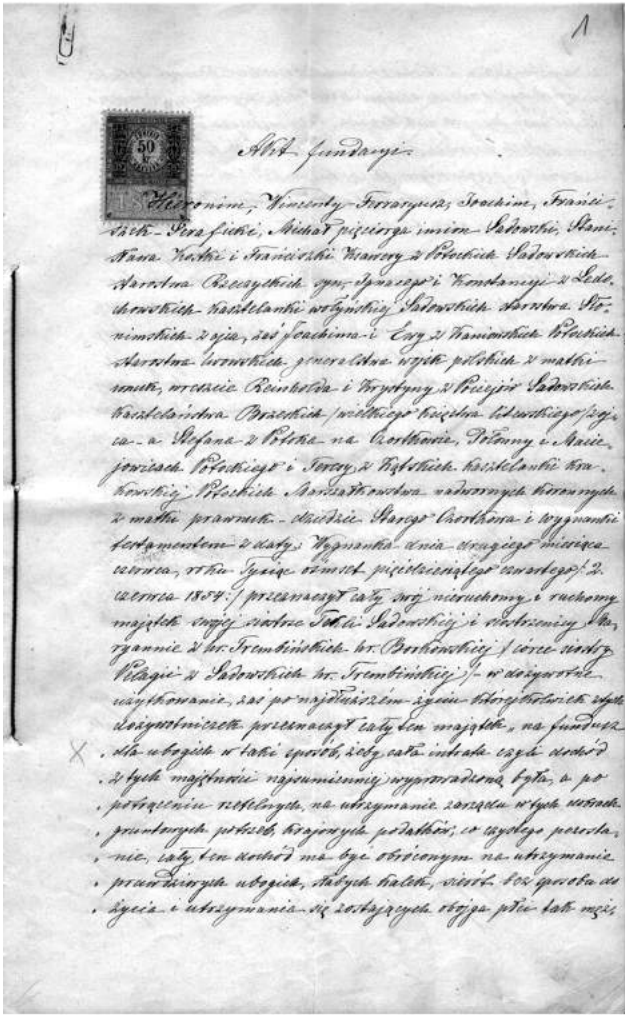 1
50
kr
Akt fundacyi.
Hieronim, Wincenty Ferraryusz, Joachim, Franci-
szek-Seraficki, Michał pięciorga imion Sadowski, Stani-
sława Kostki i Franciszki Ksawery z Potockich Sadowskich
starostwa Rzeczyckich syn, Ignacego i Konstancyi z Ledo-
chowskich kasztelanki wołyńskiej Sadowskich starostwa Sło-
nimskich z ojca, zaś Joachima i Ewy z Kaniewskich Potockich
starostwa lwowskich generalstwa wojsk polskich z matki
wnuk, wreszcie Reinholda i Krystyny z Pociejów Sadowskich
kasztelaństwa Brzeskich /wielkiego księztwa litewskiego/ z oj-
ca - a Stefana z Potoka na Czortkowie, Tołumny i Macie-
jowicach Potockiego i Teresy z Kątskich kasztelanki kra-
kowskiej Potockich Marszałkowstwa nadwornych koronnych
z matki prawnuk - dziedzic Starego Czortkowa i Wygnanki
testamentem z daty: Wygnanka dnia drugiego miesiąca
czerwca, roku Tysiąc ośmset pięćdziesiątego czwartego /: 2.
czerwca 1854 :/ przeznaczył cały swój nieruchomy i ruchomy
majątek swojej siostrze Tekli Sadowskiej i siostrzenicy Ma-
ryannie z hr. Trembińskich hr. Borkowskiej / córce siostry
Pelagii z Sadowskich hr. Trembińskiej /- w dożywotnie
użytkowanie, zaś po najdłuższem życiu którejkolwiek z tych
dożywotniczek przeznaczył cały ten majątek „na fundusz
„dla ubogich w taki sposób, żeby cała intrata czyli dochód
„z tych majętności najsumienniej wyprowadzoną była, a po
„potrąceniu rzetelnych, na utrzymanie zarządu w tych dobrach
„gruntowych potrzeb, krajowych podatków, co czystego pozosta-
„nie, cały ten dochód ma być obróconym na utrzymanie
„prawdziwych ubogich, słabych kalek, sierót bez sposobu do
„życia i utrzymania się zostających obojga płci tak męż-